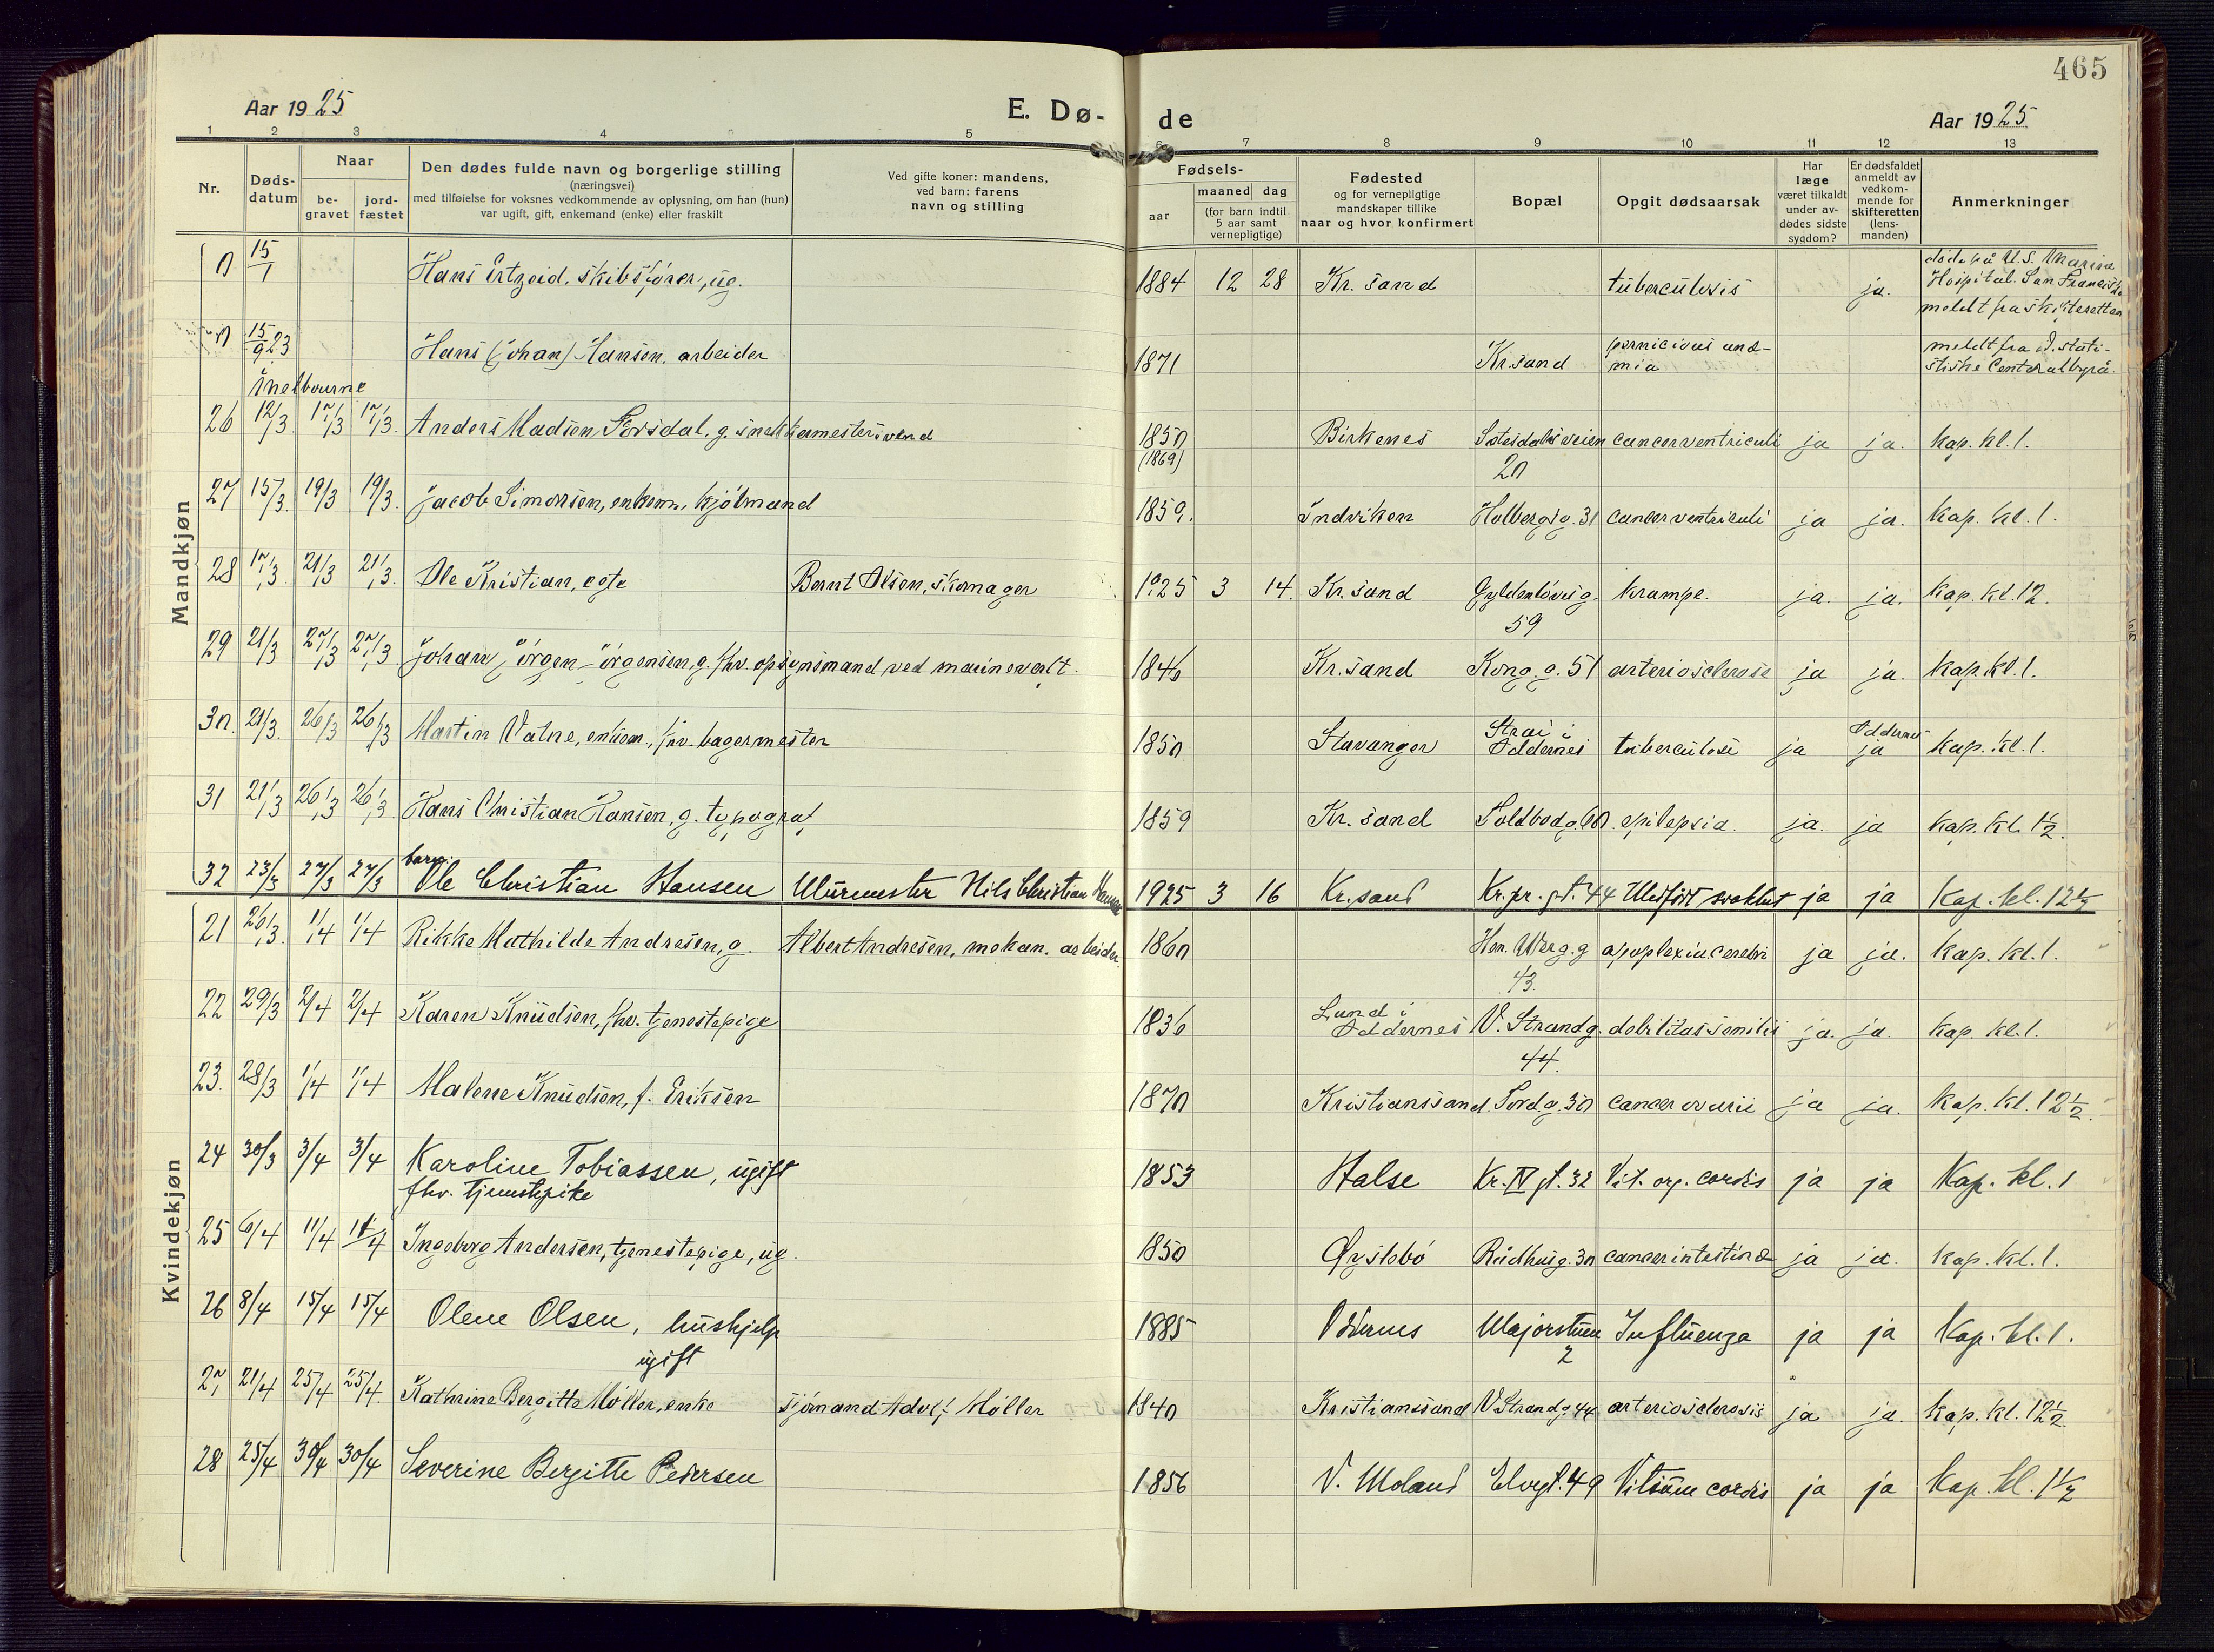 465
Aar 1925
E. Dø-
de
Aar 1925
1 2 3 4 5 6 7 8 9 10 11 12 13
Nr.
Døds-
datum
Naar
be-
gravet
jord-
fæstet
Den dødes fulde navn og borgerlige stilling
(næringsvei)
med tilføielse for voksnes vedkommende av oplysning, om han (hun)
var ugift, gift, enkemand (enke) eller fraskilt
Ved gifte koner: mandens,
ved barn: farens
navn og stilling
Fødsels-
aar
maaned dag
(for barn indtil
5 aar samt
vernepligtige)
Fødested
og for vernepligtige
mandskaper tillike
naar og hvor konfirmert
Bopæl
Opgit dødsaarsak
Har
læge
været tilkaldt
under av-
dødes sidste
sygdom?
Er dødsfaldet
anmeldt av
vedkom-
mende for
skifteretten
(lens-
manden)
Anmerkninger
Mandkjøn
0 15/1 Hans Ertzeid, skibsfører, ug. 1884 12 28 Kr. sand tuberculosis ja. døde på U.S. Marine
Hospital. San Francisko
meldt fra skifteretten
0 15/9 23 Hans (Johan) Hansen. arbeider 1871 Kr. sand pernicious anæ-
mia meldt fra d. stati-
stiske Centralbyrå.
Melbourne
26 12/3 17/3 17/3. Anders Madsen Forsdal. g. snekkermestersvend 1850 Birkenes Setesdalsveien cancer ventriculi ja ja. kap. kl. 1.
(1869) 20
27 15/3. 19/3 19/3. Jacob Simonsen, enkem., kjølmand 1859. Indviken Holbergsg. 31 cancer ventriculi ja ja. kap. kl. 1.
28 17/3. 21/3 21/3. Ole Kristian, egte Bernt Olsen, skomager 1925 3 14. Kr. sand Gyldenløvesg. krampe. ja. ja. kap. kl. 12.
59
29 21/3 27/3 27/3 Johan Jörgen Jörgensen, g. fhv. opsynsmand ved marineverft. 1846 Kr. sand Kong. g. 51 arteriosclerose ja ja. kap. kl. 1.
30. 21/3. 26/3 26/3 Martin Vatne, enkem., fhv. bagermester 1850 Stavanger Strai i
Oddernes tuberculose ja Oddernes
ja kap. kl. 1.
31 21/3 26/3 26/3. Hans Christian Hansen, g. typograf 1859 Kr. sand Toldbodg. 60. epilepsia. ja. ja kap. kl. 1 1/2.
32 23/3 27/3 27/3 barn
Ole Christian Hansen Murmester Nils Christian Hansen 1925 3 16 Kr. sand Kr. pr. gt. 44 Medfödt svakhet ja ja Kap. kl. 12 1/2
Kvindekjøn
21 26/3. 1/4 1/4 Rikke Mathilde Andresen, g. Albert Andresen, mekan. arbeider. 1860 Hen. Werg. g apoplexia cerebri ja ja. kap. kl. 1.
43.
22 29/3 2/4 2/4 Karen Knudsen, fhv. tjenestepige 1836 Lund i
Oddernes V. Strandg. debilitas senilis ja. ja. kap. kl. 1.
44.
23. 28/3 1/4 1/4 Malene Knudsen, f. Eriksen 1870 Kristianssand. Tordg. 30 cancer ovarii ja ja. kap. kl. 12 1/2.
24 30/3 3/4 3/4 Karoline Tobiassen, ugift
fhv. tjenestepike 1853 Halse Kr. IV gt. 32 Vit. org. cordis ja ja Kap. kl. 1
25 6/4 11/4 11/4 Ingeborg Andersen, tjenestepige, ug. 1850 Øyslebö Rådhusg. 30 cancer intestinæ ja ja. kap. kl. 1.
26 8/4 15/4 15/4 Olene Olsen, hushjelp
ugift 1885 Oddernes Majorstuen
2 Influenza ja ja Kap. kl. 1.
27 21/4 25/4 25/4. Kathrine Bergitte Möller, enke sjömand Adolf Möller 1840 Kristianssand V Strandg. 44 arteriosclerosis ja ja. kap. kl. 12 1/2.
28 25/4 30/4 30/4 Severine Bergitte Pedersen 1856 V. Moland Elvegt. 49 Vitium cordis ja ja Kap. kl. 1 1/2